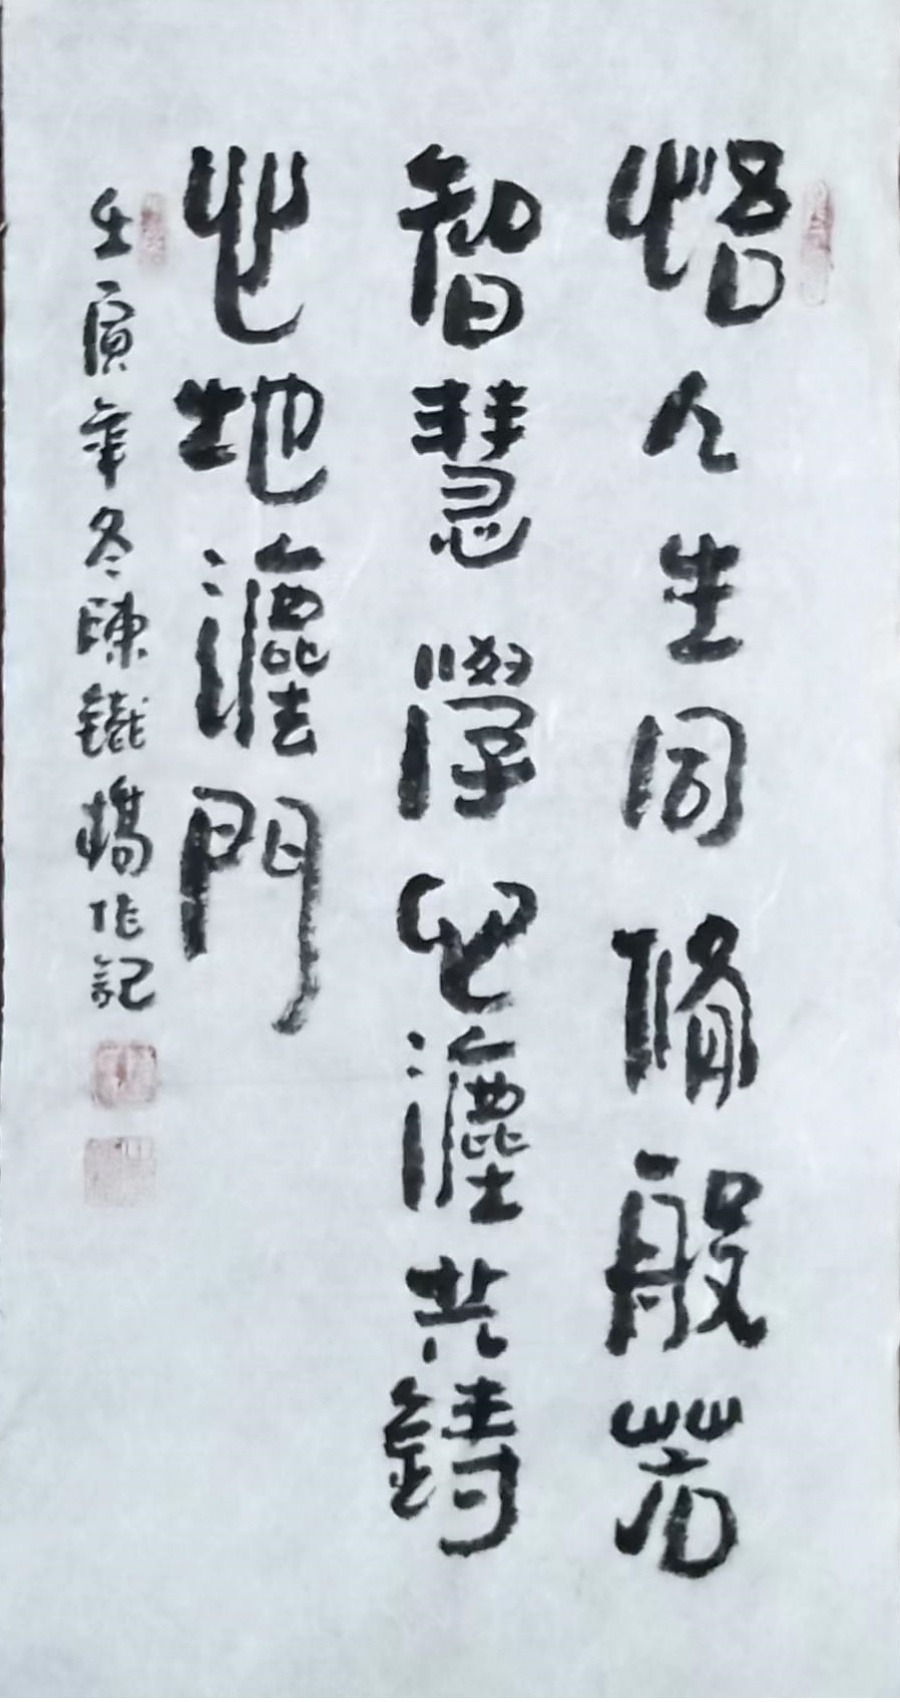 悟人生同脩般若
智慧學心灋共鑄
心地灋門
壬寅年冬陳鐵橋作記